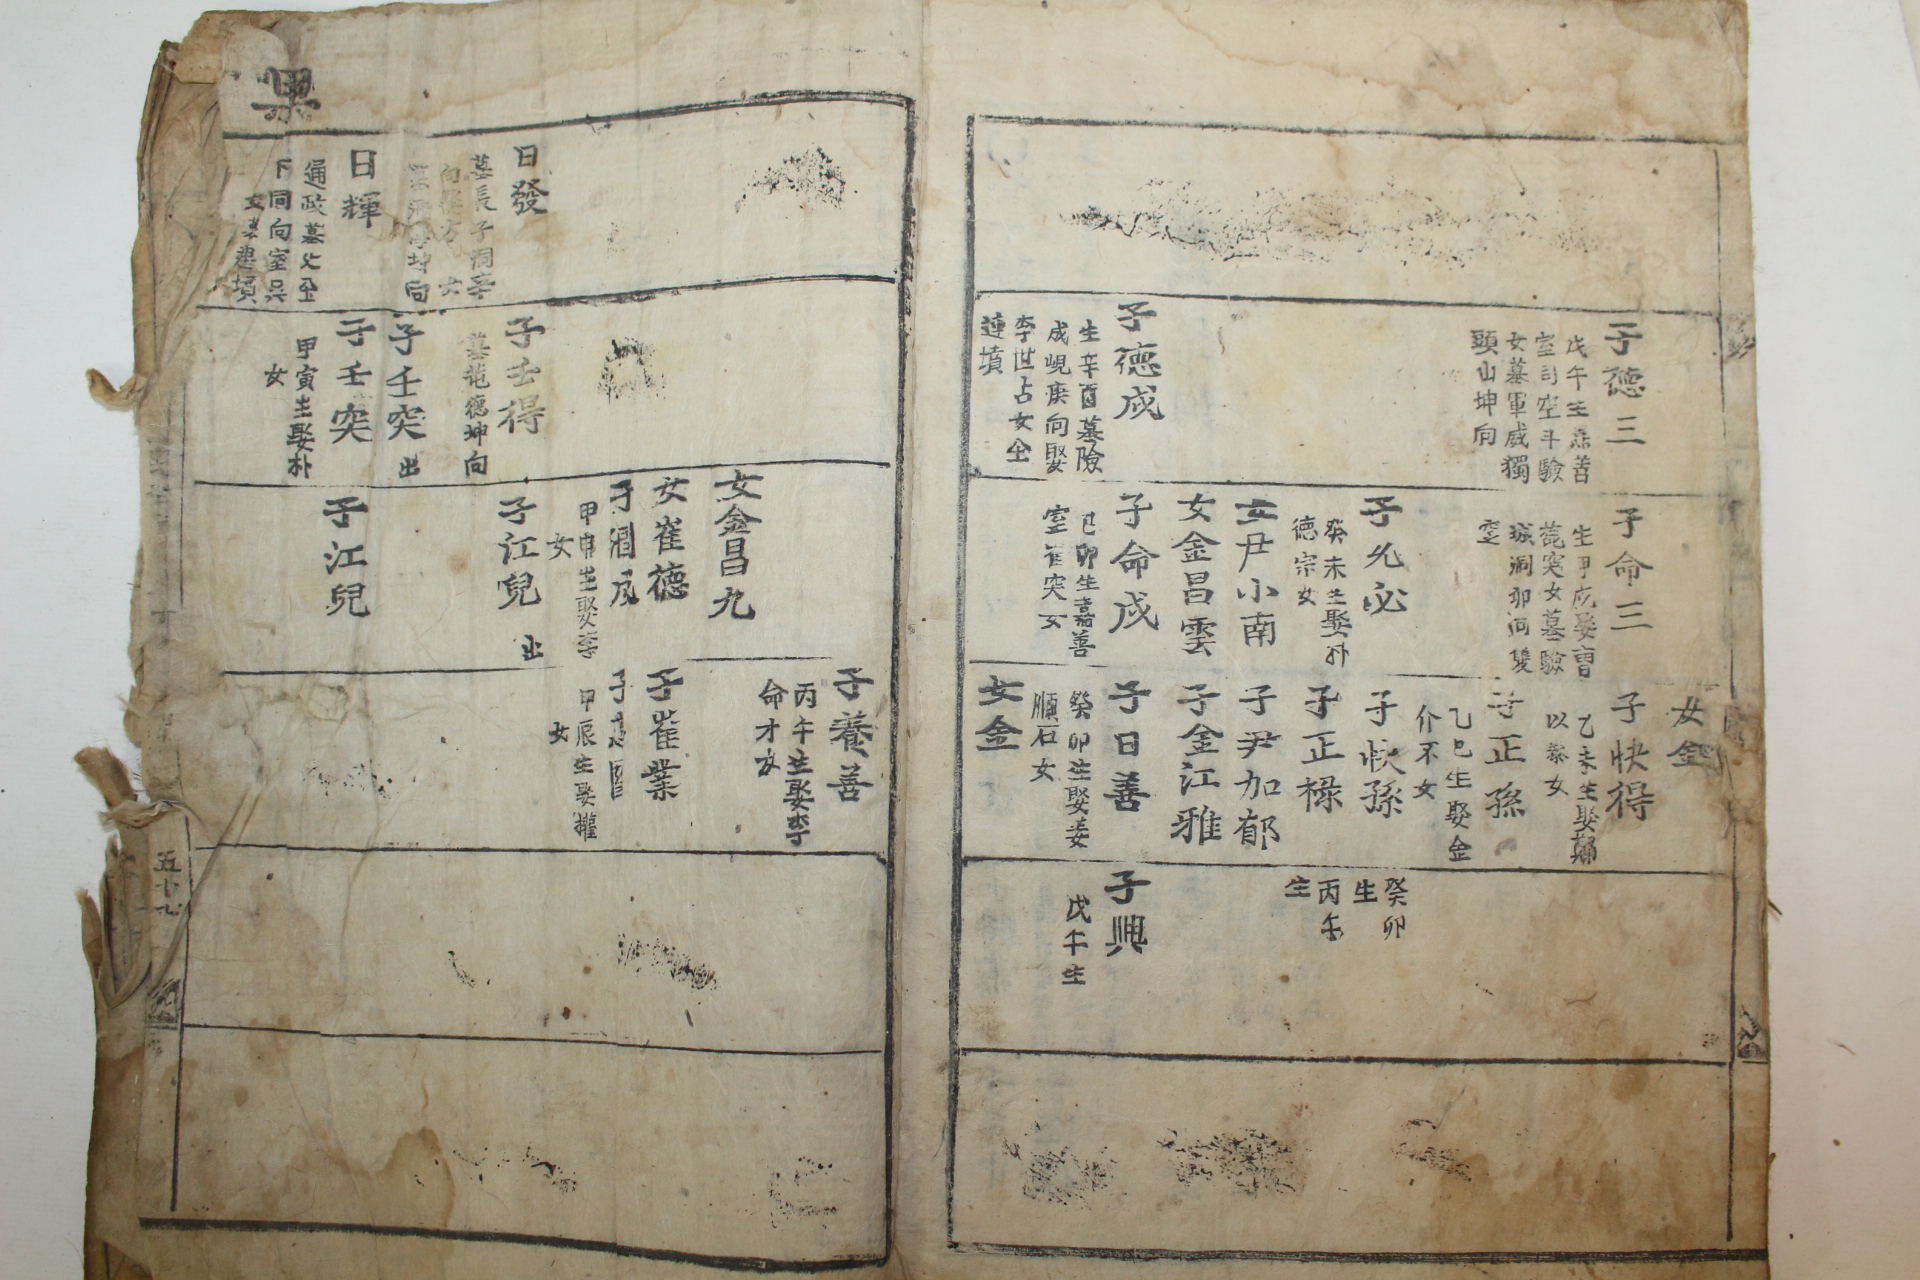 子德三
戊午生嘉善
室司空斗驗
女墓軍威獨
頭山坤向
子德成
生辛酉墓險
成峴庚向娶
李世占女全
蓮墳
子命三
生甲戌娶曺
苑突女墓驗
城洞卯向雙
窆
子允必
癸未生娶朴
德宗女
女尹小南
女金昌雲
子命成
己卯生嘉善
室崔突女
女金
子快得
乙未生娶
以泰女
子正孫
乙巳生娶金
介不女
子快孫
子正祿
子尹加郁
子金江雅
子日善
癸卯生娶姜
順石女
女金
癸卯
生
丙午
生
子興
戊午生
果
日發
墓長子洞辛
日輝
通政墓父塋
下同向室吳
子壬得
墓苑德坤向
子壬突 出
子壬突
甲寅生娶朴
女
女金昌九
女崔德
子酒成
甲申生娶李
女
子江兒 出
子江兒
子養善
丙午生娶李
命才女
子崔業
甲辰生娶權
女
五十九